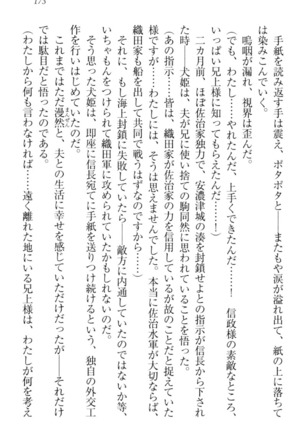 173
手紙を読み返す手は震え、ポタポタと――またもや涙が溢れ出て、紙の上に落ちて
は染みこんでいく。
嗚咽が漏れ、視界は歪んだ。
（でも、わたし……やれたんだ、上手くできたんだ……！　信政様の素敵なところ、
いっぱい兄上様に知ってもらえたんだ……！）
二ヵ月前、ほぼ佐治家独力で、安濃津城の湊を封鎖せよとの指示が信長から下され
た時――犬姫は、夫が兄に使い捨ての駒同然に思われていることを悟った。
（あの指示……皆は、織田家が佐治家を信用しているが故のことだと捉えていた
様ですが……わたしには、そうは思えませんでした。本当に佐治水軍が大切なら、
織田家も船を出して共同で戦うはずなのですから……）
それに、もし海上封鎖に失敗していたら――敵方に内通していたのではないか等、
いちゃもんをつけられて織田軍に攻められていたかもしれない。
そう思った犬姫は、即座に信長宛てに手紙を送りつけ続けるという、独自の外交工
作を行いはじめていたのだ。
これまではただ漫然と、夫との生活に幸せを感じていただけだったが――それだけ
では駄目だと悟ったのである。
（わたしから何も言わなければ……遠く離れた地にいる兄上様は、わたしが何を考え